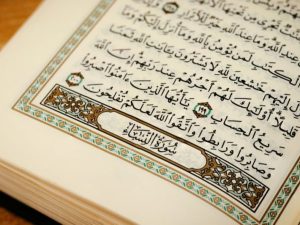 وما عند الله خير للأبرار
الكتب لمن يؤمن بالله وما أنزل إليكم وما
أنزل إليهم خشعين لله لا يشترون بءايت الله ثمنا
قليلا أولئك لهم أجرهم عند ربهم إن الله
سريع الحساب ١٩٩ يأيها الذين ءامنوا اصبروا
وصابروا ورابطوا واتقوا الله لعلكم تفلحون ٢٠٠
سورة النساء